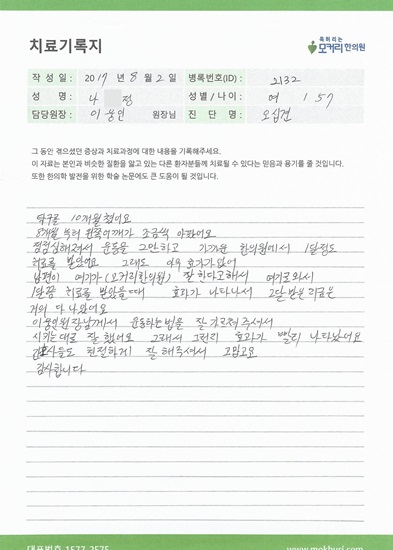 치료기록지
목허리는
모커리한의원
작 성 일 : 2017 년 8 월 2 일 병록번호(ID) : 2132
성 명 : 나 정 성별 / 나이 : 여 / 57
담당원장 : 이용인 원장님 진 단 명 : 오십견
그 동안 겪으셨던 증상과 치료과정에 대한 내용을 기록해주세요.
이 자료는 본인과 비슷한 질환을 앓고 있는 다른 환자분들께 치료될 수 있다는 믿음과 용기를 줄 것입니다.
또한 한의학 발전을 위한 학술 논문에도 큰 도움이 될 것입니다.
탁구를 10개월 쳤어요
8개월 부터 왼쪽어깨가 조금씩 아파어요
점점심해져서 운동을 그만하고 가까운 한의원에서 1달정도
치료를 받았어요 그래도 아무 효과가없어
남편이 여기가 (모커리한의원) 잘한다고해서 여기로와서
1달쯤 치료를 받았을때 효과가 나타나서 2달 받은 치료은
거의 다 나았어요
이용인원장님께서 운동하는법을 잘가르쳐주셔서
시키는대로 잘 했어요 그래서 그런지 효과가 빨리 나타났어요
간호사들도 친절하게 잘 해주셔서 고맙고요
감사합니다
대표번호 1577-7575 www.mokhuri.com